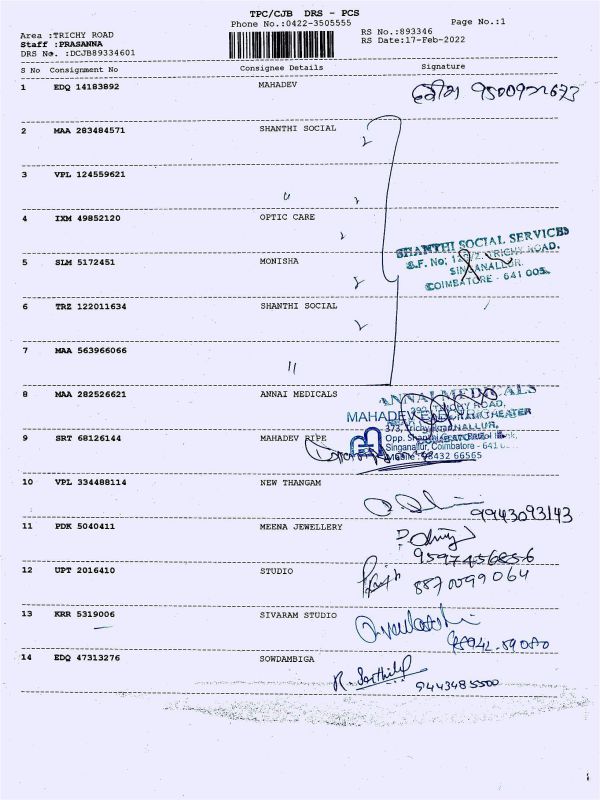 TPC/CJB DRS - PCS
Phone No.:0422-3505555
Page No.:1
Area :TRICHY ROAD
RS No.:893346
Staff :PRASANNA
RS Date:17-Feb-2022
DRS No. :DCJB89334601
S No Consignment No Consignee Details Signature
1 EDQ 14183892 MAHADEV
2 MAA 283484571 SHANTHI SOCIAL
3 VPL 124559621 "
4 IXM 49852120 OPTIC CARE
SHANTHI SOCIAL SERVICES
S.F. No: TRICHY ROAD.
5 SLM 5172451 MONISHA
SINGANALLUR.
COIMBATORE - 641 005.
6 TRZ 122011634 SHANTHI SOCIAL
7 MAA 563966066 "
8 MAA 282526621 ANNAI MEDICALS
ANNAI MEDICALS
TRICHY ROAD,
MAHADEV
373, Trichy
9 SRT 68126144 MAHADEV RIPE
Opp.
Singanallur, Coimbatore - 641
98432 66565
10 VPL 334488114 NEW THANGAM
9943093143
11 PDK 5040411 MEENA JEWELLERY
9597456856
12 UPT 2016410 STUDIO
8870099064
13 KRR 5319006 SIVARAM STUDIO
14 EDQ 47313276 SOWDAMBIGA
9443485500